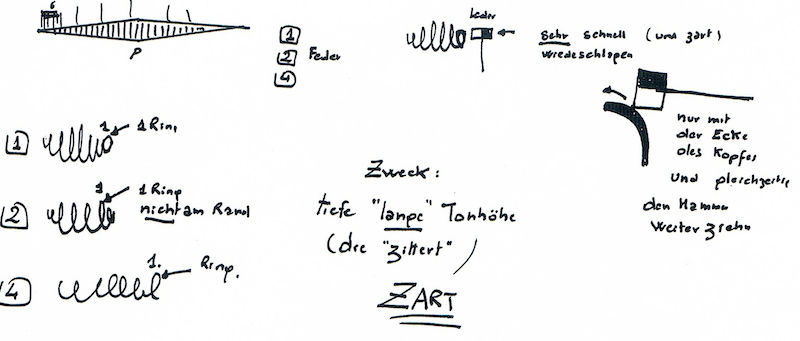 6
P
1
2 Feder
4
Leder
Sehr schnell (und zart)
wiedeschlagen
nur mit
der Ecke
des Kopfes
und gleichzeitig
den Hammer
weiter ziehn
1 1. Ring
1
2 1. 1 Ring
nicht am Rand
4 1. Ring.
Zweck:
tiefe "lange" Tonhöhe
(die "zittert"
ZART